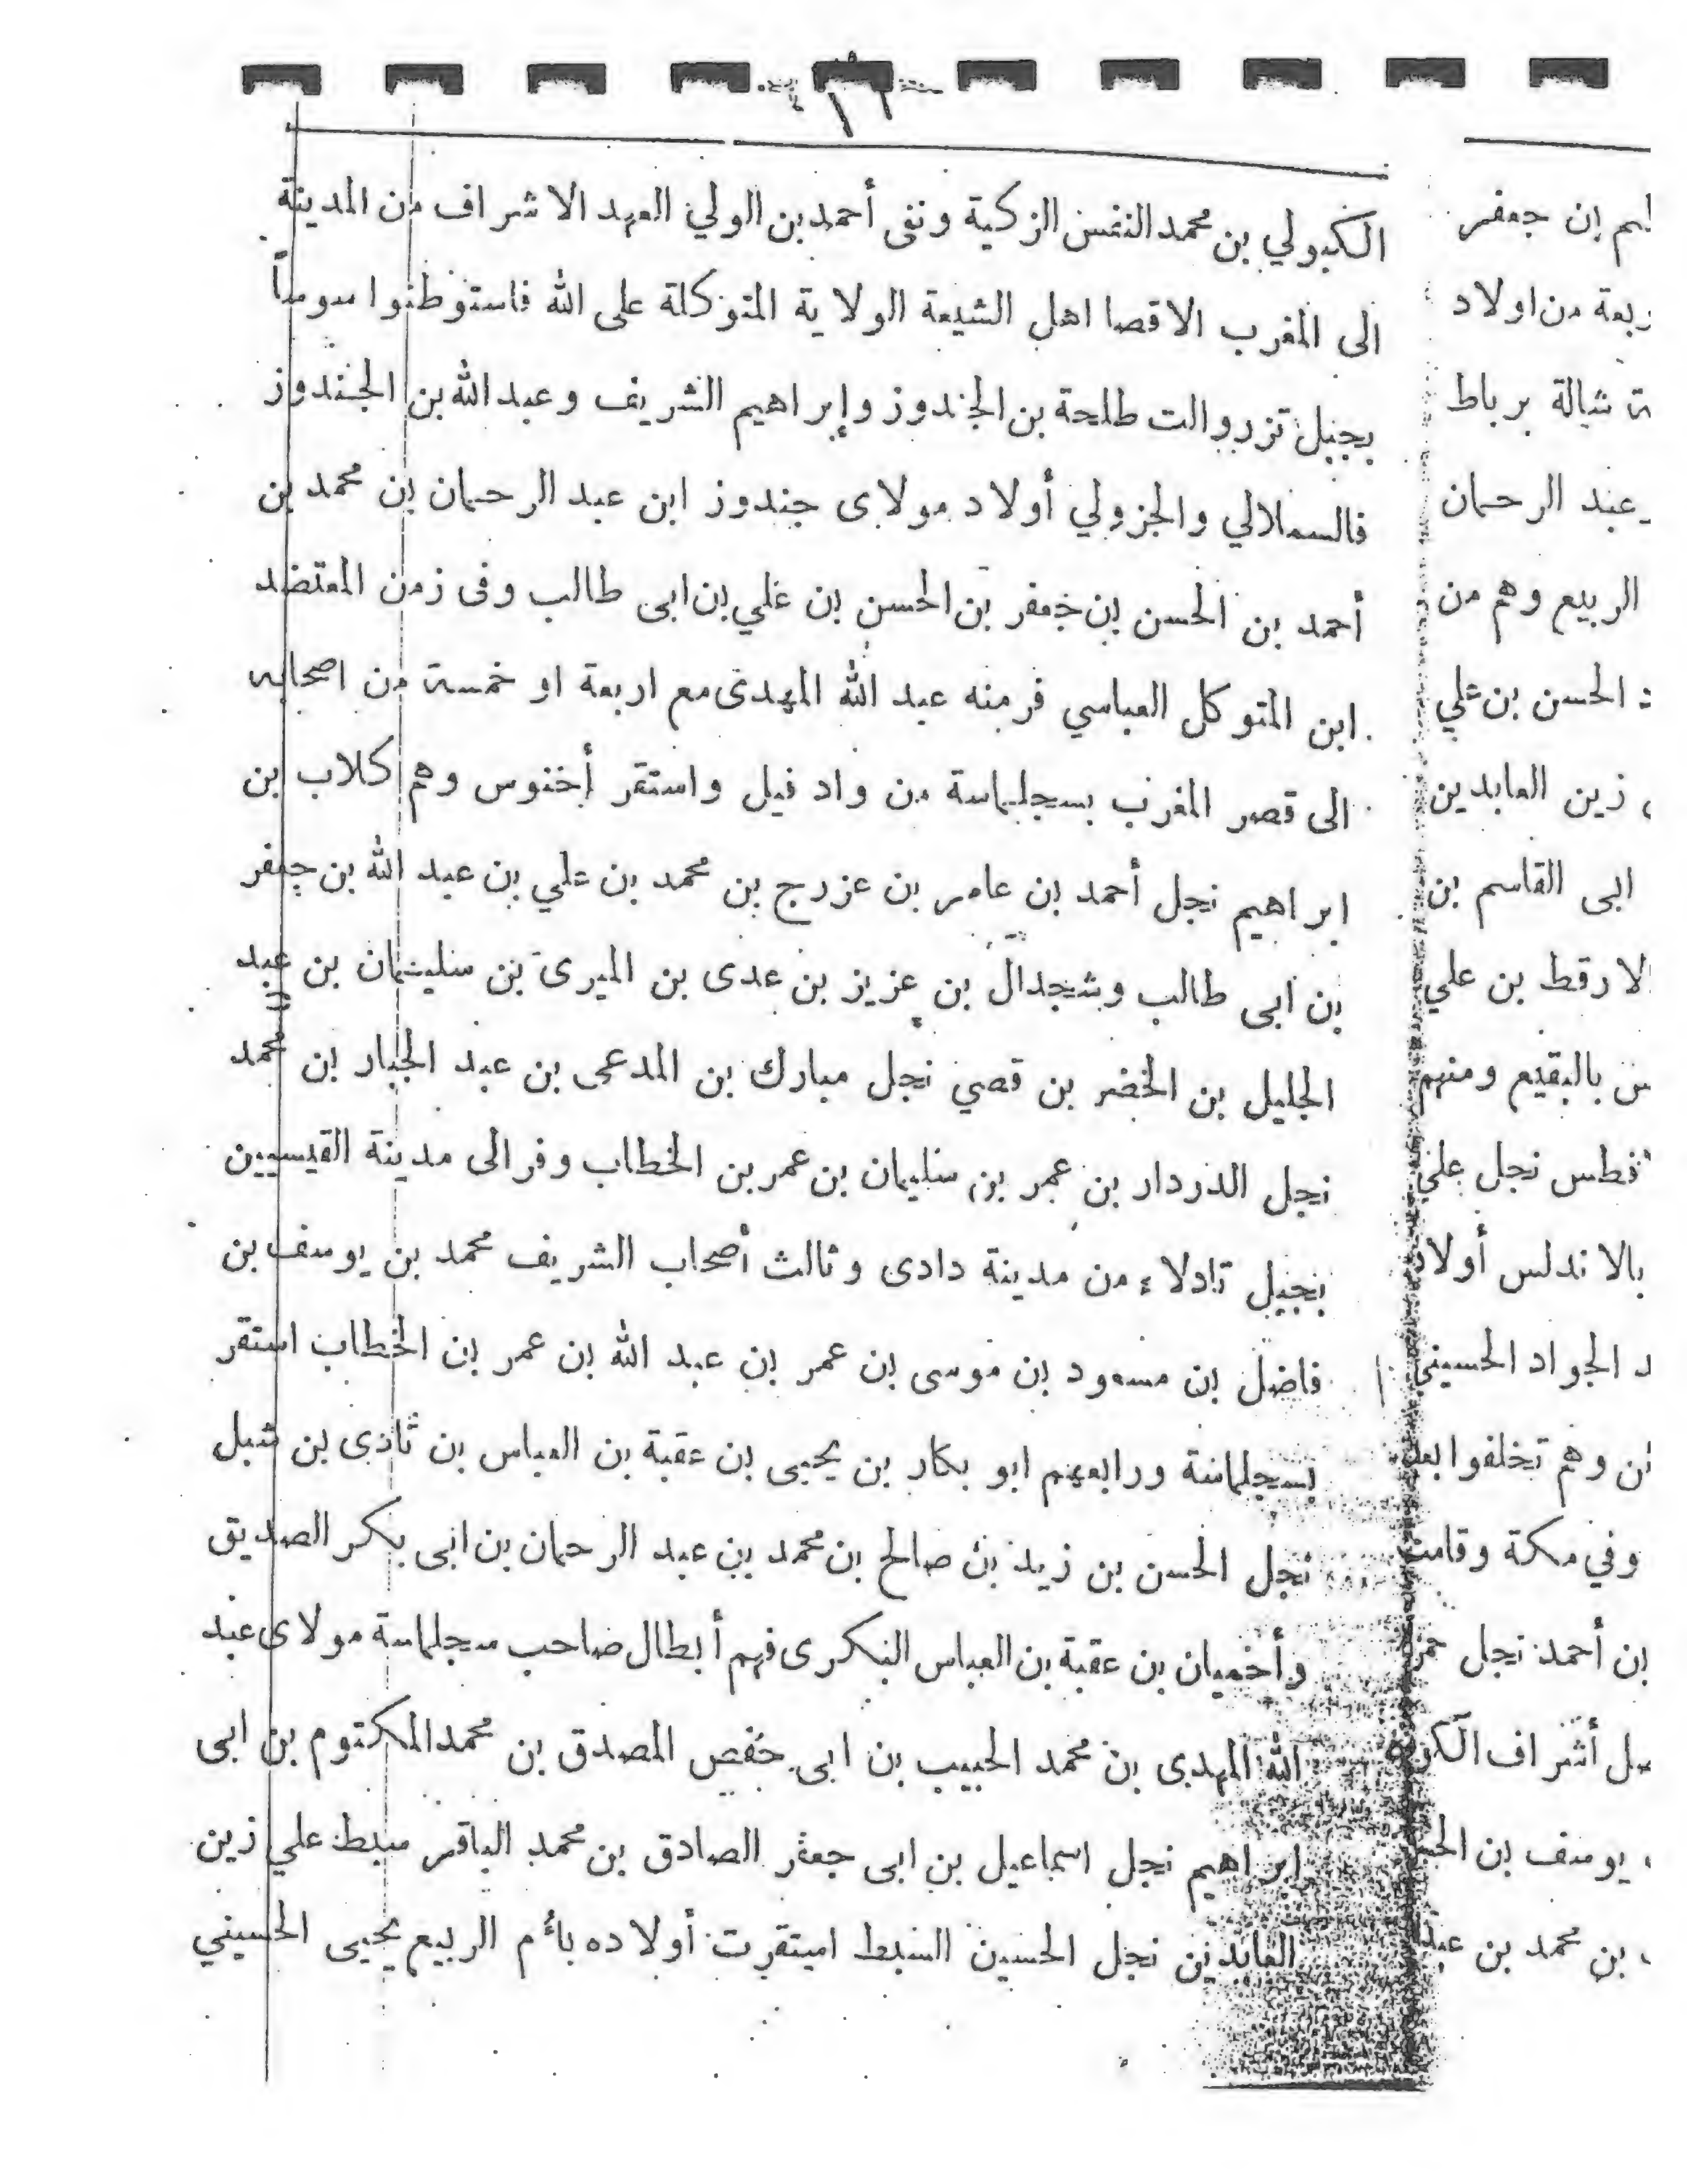 الكبولي بن محمد النفس الزكية ونفى أحمد بن الولي العهد الاشراف من المدينة
الى المغرب الاقصا اهل الشيعة الولاية المتوكلة على الله فاستوطنوا سوساً
بجبل تزروالت طلحة بن الجندوز وإبراهيم الشريف وعبد الله بن الجندوز
فالسملالي والجزولي أولاد مولاى جندوز ابن عبد الرحمان بن محمد بن
أحمد بن الحسن بن جعفر بن الحسن بن علي بن ابى طالب وفى زمن المعتضد
ابن المتوكل العباسي فر منه عبد الله المهدى مع اربعة او خمسة من اصحابه
الى قصر المغرب بسجلماسة من واد فيل واستقر أخنوس وهم كلاب بن
ابراهيم نجل أحمد بن عامر بن عزرج بن محمد بن علي بن عبد الله بن جعفر
بن ابى طالب وشجدال بن عزيز بن عدى بن الميرى بن سليمان بن عبد
الجليل بن الخضر بن قصي نجل مبارك بن المدعى بن عبد الجبار بن محمد
نجل الدردار بن عمر بن سليمان بن عمر بن الخطاب وفر الى مدينة القيسيين
بجبل تادلاء من مدينة دادى وثالث أصحاب الشريف محمد بن يوسف بن
فاضل بن مسعود بن موسى بن عمر بن عبد الله بن عمر بن الخطاب استقر
بسجلماسة ورابعهم ابو بكار بن يحيى بن عقبة بن العباس بن ثادى بن شبل
نجل الحسن بن زيد بن صالح بن محمد بن عبد الرحمان بن ابى بكر الصديق
وأخميان بن عقبة بن العباس البكرى فهم أبطال صاحب سجلماسة مولاى عبد
الله المهدى بن محمد الحبيب بن ابى حفص المصدق بن محمد المكتوم بن ابى
ابراهيم نجل اسماعيل بن ابى جعفر الصادق بن محمد الباقر سبط علي زين
العابدين نجل الحسين السبط استقرت أولاده بأم الربيع يحيى الحسيني
إن جعفر
من اولاد
شالة برباط
عبد الرحمان
الربيع وهم من
الحسن بن علي
زين العابدين
ابى القاسم بن
لارقط بن علي
بالبقيع ومنهم
فطس نجل علي
بالاندلس أولاد
الجواد الحسيني
وهم تخلفوا بعد
وفي مكة وقامت
بن أحمد نجل
أشراف
يوسف بن
بن محمد بن